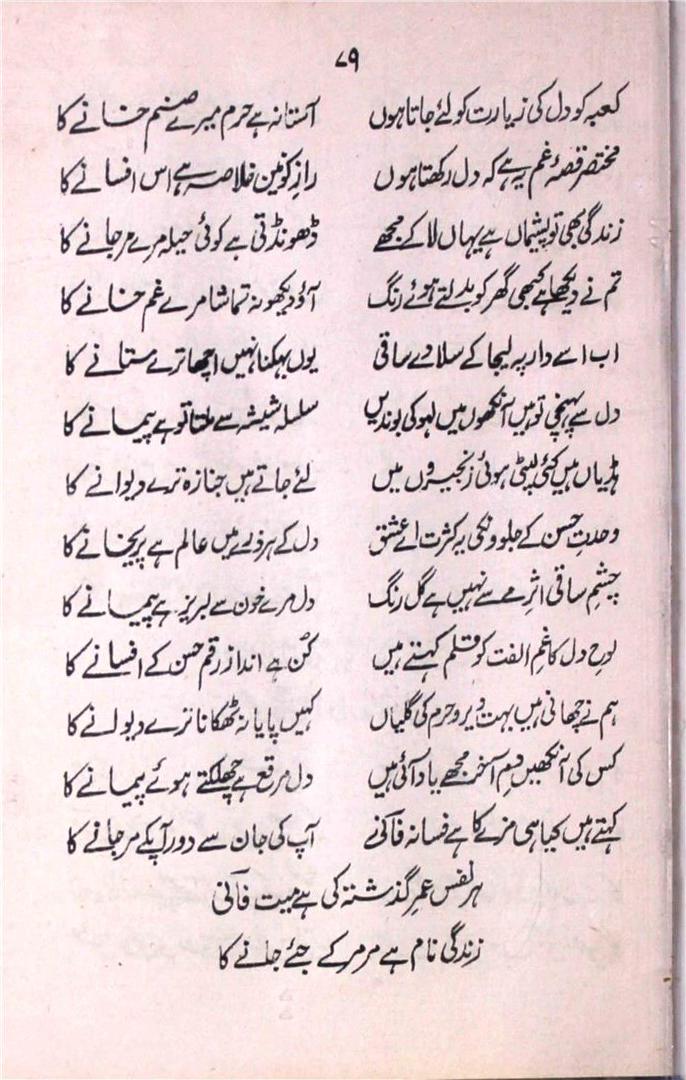 ۷۹
کعبہ کو دل کی زیارت کو لئے جاتا ہوں آستانہ ہے حرم میرے صنم خانے کا
مختصر قصۂ غم یہ ہے کہ دل رکھتا ہوں رازِ کونین خلاصہ ہے اس افسانے کا
زندگی بھی تو پشیماں ہے یہاں لا کے مجھے ڈھونڈتی ہے کوئی حیلہ مرے مر جانے کا
تم نے دیکھا ہے کبھی گھر کو بدلتے ہوئے رنگ آؤ دیکھو نہ تماشا مرے غم خانے کا
اب اسے دار پہ لیجا کے سلا دے ساقی یوں بہکنا نہیں اچھا ترے مستانے کا
دل سے پہنچی تو ہیں آنکھوں میں لہو کی بوندیں سلسلہ شیشہ سے ملتا تو ہے پیمانے کا
ہڈیاں ہیں کئی لپٹی ہوئی زنجیروں میں لئے جاتے ہیں جنازہ ترے دیوانے کا
وحدتِ حسن کے جلوونکی یہ کثرت اے عشق دل کے ہر ذرے میں عالم ہے پریخانے کا
چشمِ ساقی اثرِ مے سے نہیں ہے گل رنگ دل مرے خون سے لبریز ہے پیمانے کا
لوح دل کا غمِ الفت کو قلم کہتے ہیں کُن ہے انداز رقم حسن کے افسانے کا
ہم نے چھانی ہیں بہت دیر و حرم کی گلیاں کہیں پایا نہ ٹھکانا ترے دیوانے کا
کس کی آنکھیں دمِ آخر مجھے یاد آئی ہیں دل مرقع ہے چھلکتے ہوئے پیمانے کا
کہتے ہیں کیا ہی مزے کا ہے فسانہ فانی آپ کی جان سے دور آپکے مر جانے کا
ہر نفس عمرِ گذشتہ کی ہے میت فانی
زندگی نام ہے مر مر کے جئے جانے کا